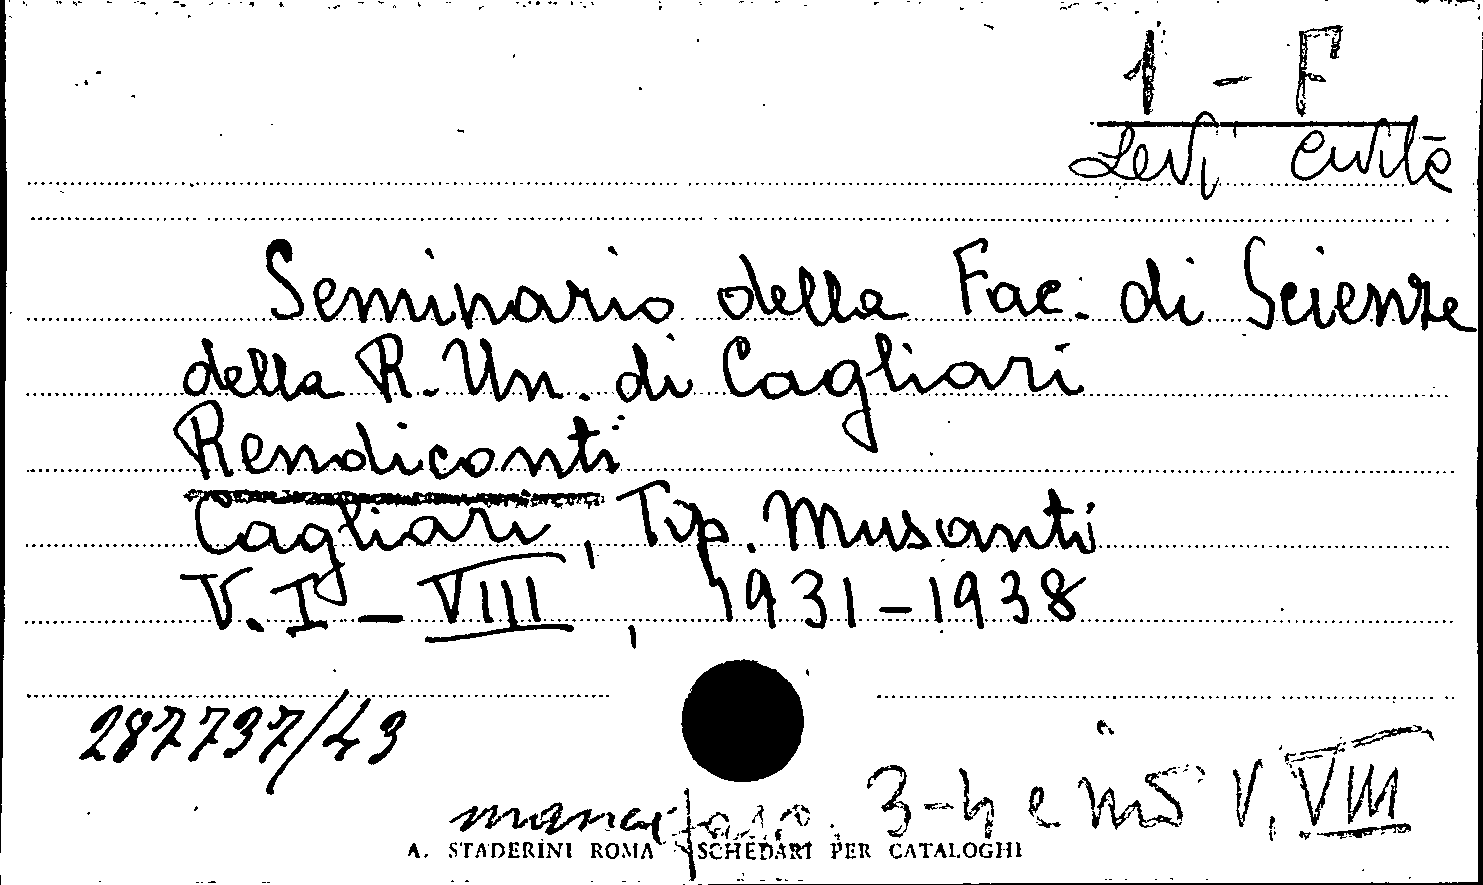 1 - F
Levi Civita
Seminario della Fac. di Scienze
della R. Un. di Cagliari
Rendiconti
Cagliari, Tip. Musanti
V. I - VIII, 1931-1938
287737/43
manca fasc. 3-4 e V, VIII
A. STADERINI ROMA SCHEDARI PER CATALOGHI